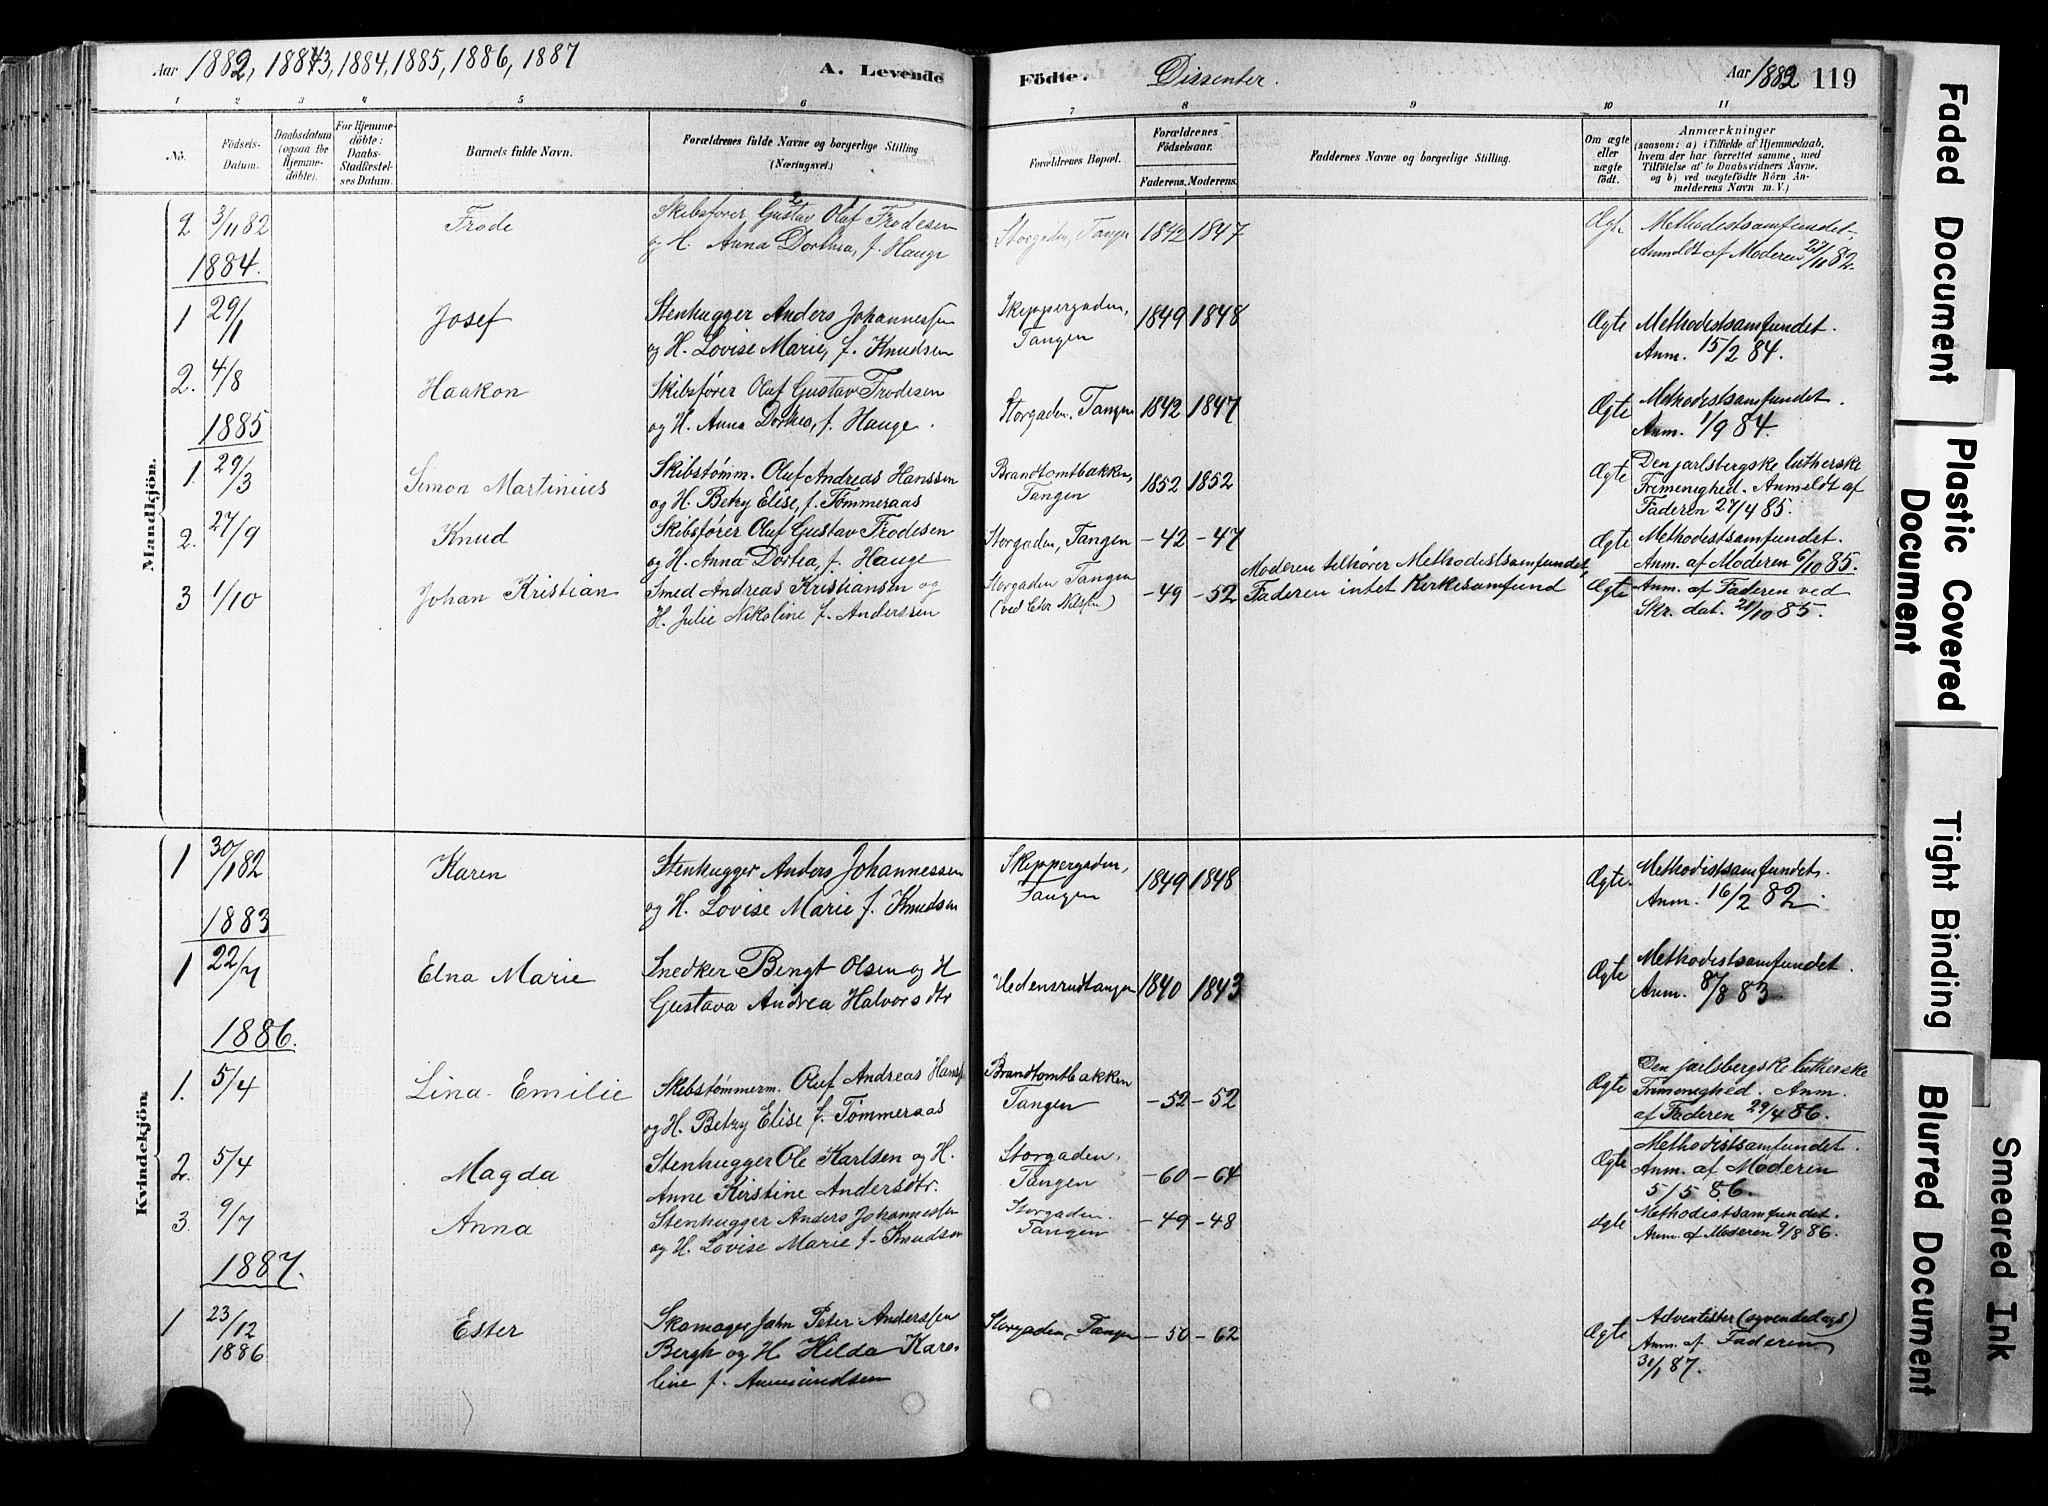 Aar 1882, 1883, 1884, 1885, 1886, 1887
A. Levende
Födte.
Dissenter.
Aar 1882
119
1 2 3 4 5 6 7 8 9 10 11
No.
Födsels-
Datum.
Daabsdatum
(ogsaa for
Hjemme-
döbte).
For Hjemme-
döbte:
Daabs-
Stadfæstel-
ses Datum.
Barnets fulde Navn.
Forældrenes fulde Navne og borgerlige Stilling
(Næringsvei.)
Forældrenes Bopæl.
Forældrenes
Födselsaar.
Faderens. Moderens.
Faddernes Navne og borgerlige Stilling.
Om ægte
eller
uægte
födt.
Anmærkninger
(saasom: a) i Tilfælde af Hjemmedaab,
hvem der har forrettet samme, med
Tilföielse af to Daabsvidners Navne,
og b) ved uægtefödte Börn An-
melderens Navn m. V.)
Mandkjön.
2 3/11 82
Frode
Skibsfører Gustav Oluf Frodesen
2 1
og H. Anna Dorthea, f. Hauge
Storgaden, Tangen
1842 1847
Ægte
Methodestsamfundet,
Anmeldt af Moderen 22/11 82.
1884.
1 29/1
Josef
Stenhugger Anders Johannessen
og H. Lovise Marie, f. Knudsen
Skippergaden,
Tangen
1849 1848
Ægte
Methodestsamfundet.
Anm. 15/2 84.
2. 4/8
Haakon
Skibsfører Oluf Gustav Frodesen
og H. Anna Dorthea, f. Hauge.
Storgaden. Tangen
1842 1847
Ægte
Methodestsamfundet.
Anm. 1/9 84.
1885
1. 29/3
Simon Martinius
Skibstømm. Oluf Andreas Hanssen
og H. Betzy Elise, f. Tømmeraas
Brandtomtbakken,
Tangen
1852 1852
Ægte
Den jarlsbergske lutherske
Frimenighed. Anmeldt af
Faderen 27/4 85.
2. 27/9
Knud
Skibsfører Oluf Gustav Frodesen
og H. Anna Dortea, f. Hauge
Storgaden, Tangen
-42 -47
Ægte
Methodestsamfundet.
Anm. af Moderen 6/10 85.
3 1/10
Johan Kristian
Smed Andreas Kristiansen og
H. Julie Nikoline f. Anderssen
Storgaden Tangen
-49 -52
Moderen tilhører Methodestsamfundet,
Faderen intet Kirkesamfund
Ægte
Anm. af Faderen ved
Skr. dat. 28/10 85.
Kvindekjön.
1 30/1 82
Karen
Stenhugger Anders Johannessen
og H. Lovise Marie f. Knudsen
Skippergaden,
Tangen
1849 1848
Ægte
Methodistsamfundet.
Anm. 16/2 82.
1883
1 22/7
Elna Marie
Snedker Bengt Olsen og H
Gustava Andrea Halvorsdtr
Hedensrudtangen
1840 1843
Ægte
Methodestsamfundet.
Anm. 8/8 83
1886.
1. 5/4
Lina Emilie
Skibstømmerm. Oluf Andreas Hanss
og H. Betzy Elise f. Tømmeraas
Brandtomtbakken
Tangen
-52 -52
Ægte
Den jarlsbergske lutherske
Frimenighed. Anm.
af Faderen 29/4 86.
2. 5/4
Magda
Stenhugger Ole Karlsen og H.
Anne Kirstine Andersdtr.
Storgaden,
Tangen
-60 -64
Ægte
Methodistsamfundet.
Anm. af Moderen
5/5 86.
3. 9/7
Anna
Stenhugger Anders Johannessen
og H. Lovise Marie f. Knudsen
Storgaden.
Tangen
-49 -48
Ægte
Methodistsamfundet.
Anm. af Moderen 9/8 86.
1887.
1 23/12
1886
Ester
Skomager John Peter Anderssen
Bergh og H Hilda Karo-
line f. Amundsen
Storgaden, Tangen
-50 -62
Ægte
Adventister (syvendedags)
Anm. af Faderen
31/1 87.
Faded Document
Plastic Covered
Document
Tight Binding
Blurred Document
Smeared Ink